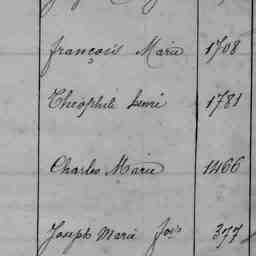 françois Marie 1708
Théophile henri 1781
Charles Marie 1466
Joseph Marie fois 377